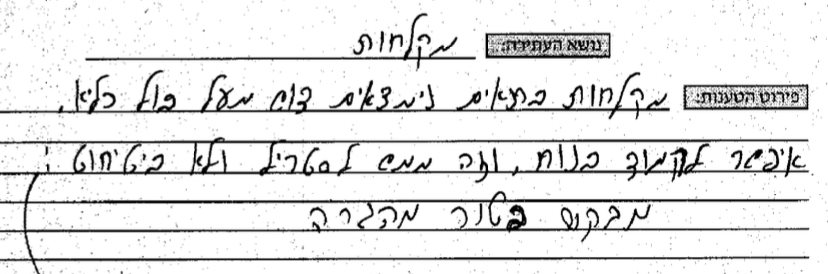 נושא העתירה: מקלחות
פירוט הטענות: מקלחות בתאים נימצאים מעל כלא.
איפשר לעמוד בנוח, וזה ממש לסטריל ולא ביטיחוט
מבקש פטור מהגרה